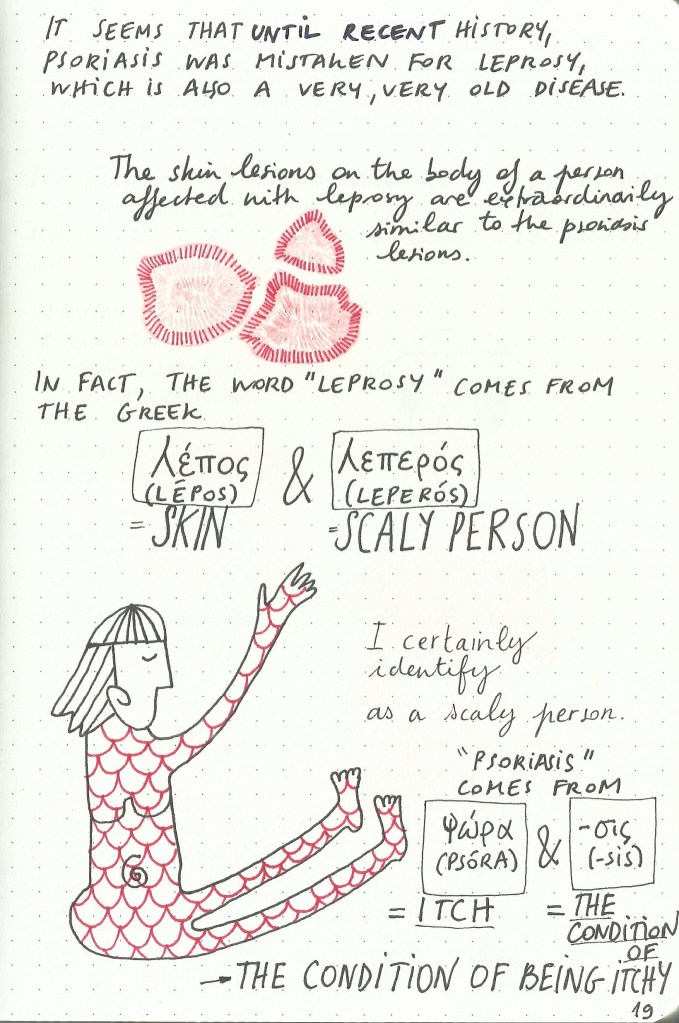 IT SEEMS THAT UNTIL RECENT HISTORY,
PSORIASIS WAS MISTAKEN FOR LEPROSY,
WHICH IS ALSO A VERY, VERY OLD DISEASE.
The skin lesions on the body of a person
affected with leprosy are extraordinarily
similar to the psoriasis
lesions.
IN FACT, THE WORD "LEPROSY" COMES FROM
THE GREEK
λέπος & λεπερός
(LÉPOS) (LEPERÓS)
= SKIN = SCALY PERSON
I certainly
identify
as a scaly person.
"PSORIASIS"
COMES FROM
ψώρα & -σις
(PSÓRA) (-SIS)
= ITCH = THE
CONDITION
OF
→ THE CONDITION OF BEING ITCHY
19